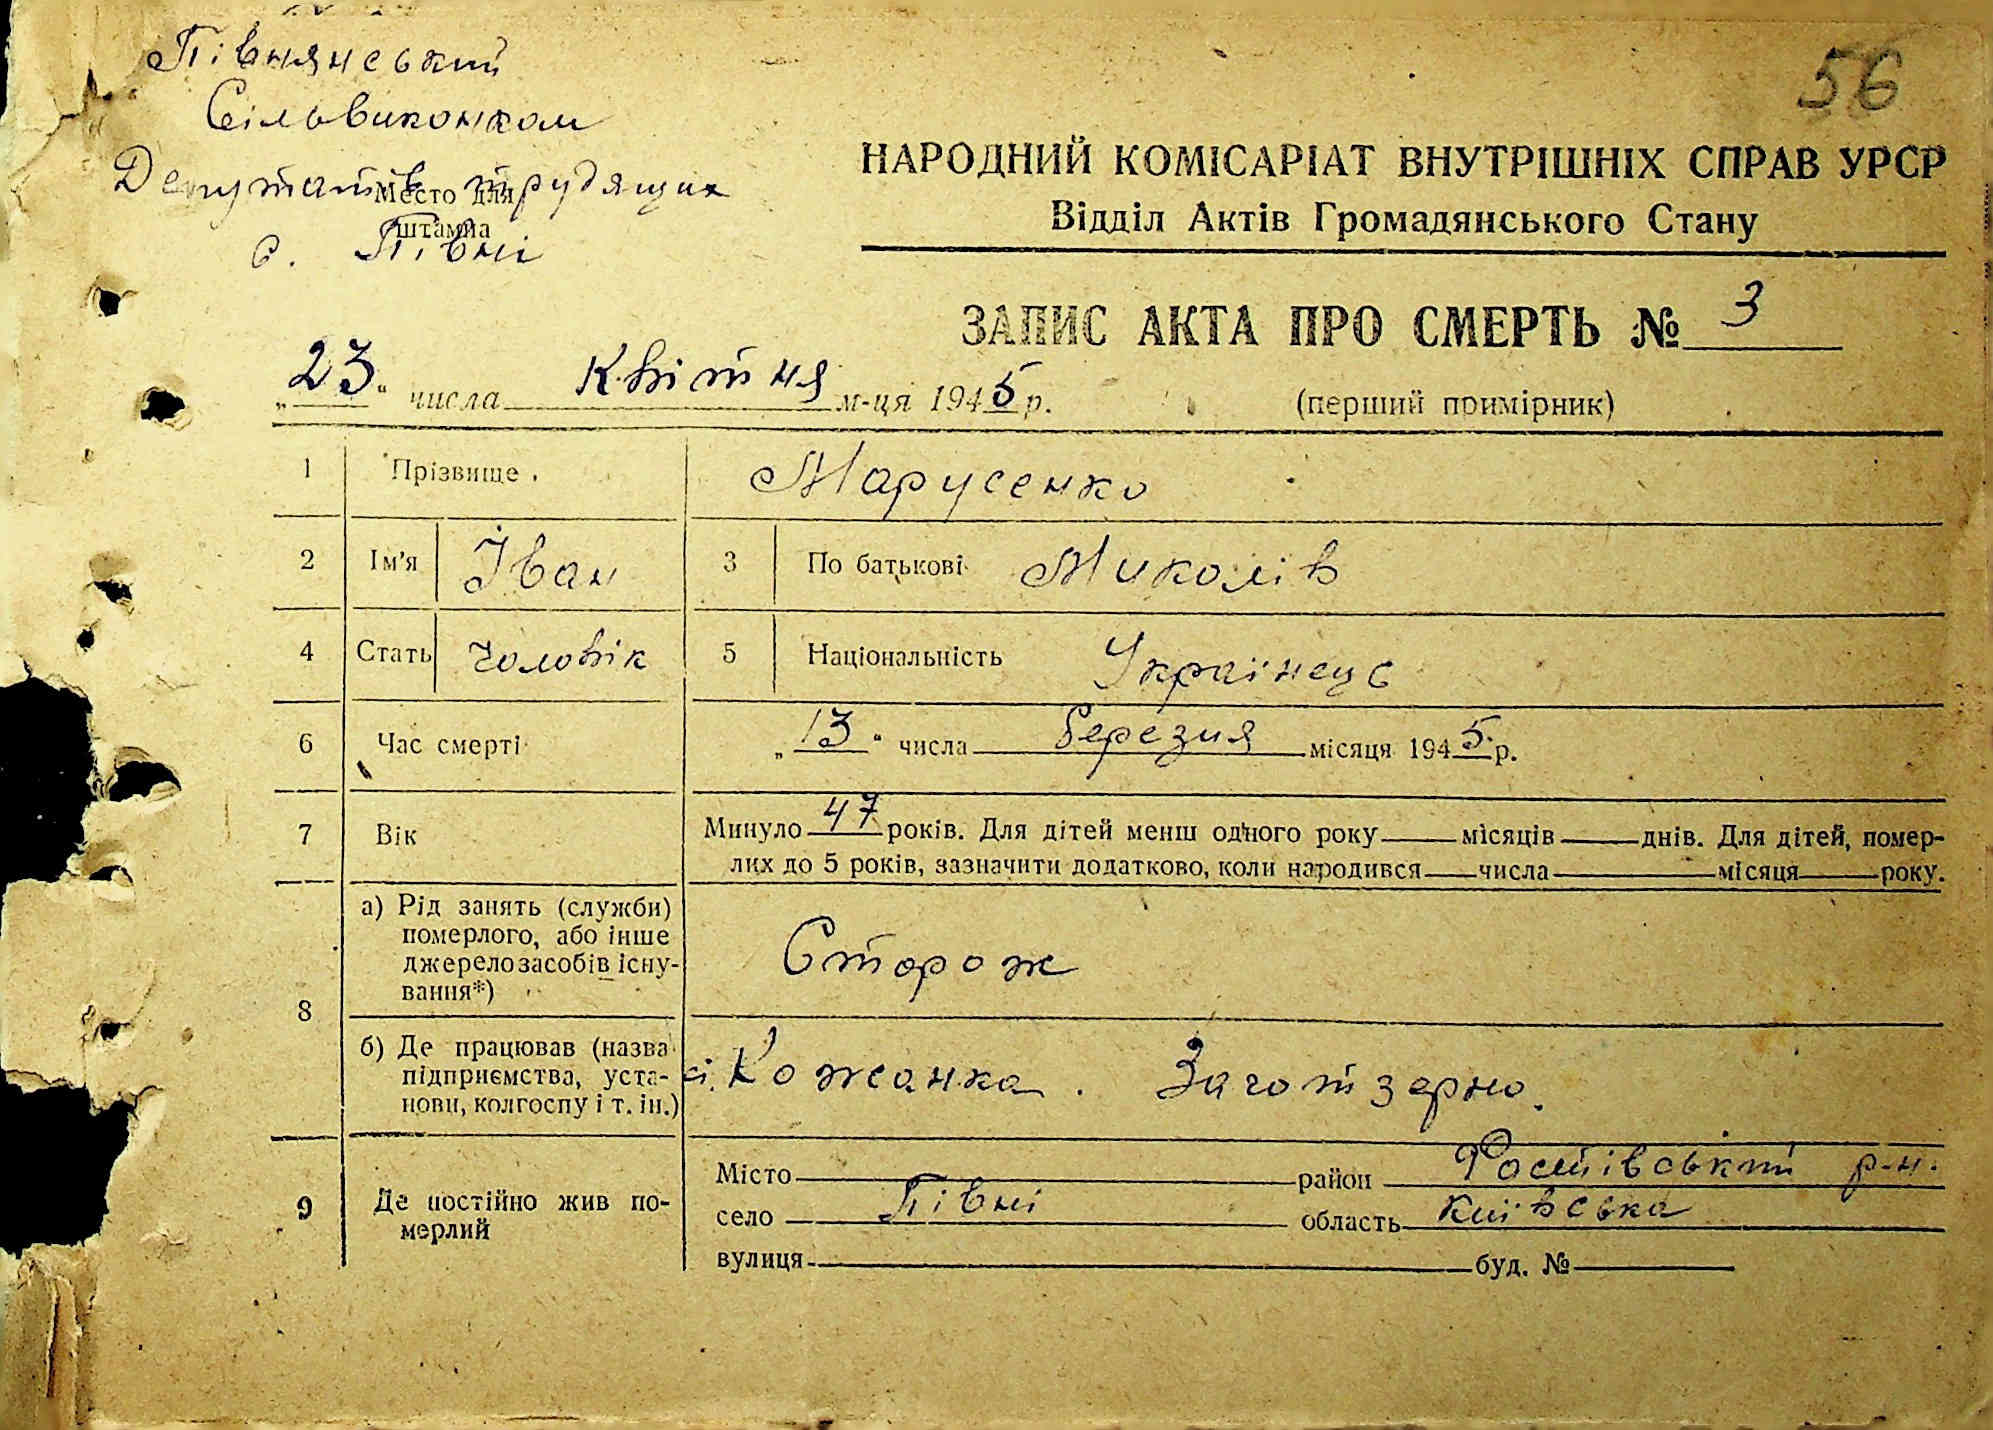 Півнянський
Сільвиконком
Депутатів трудящих
Место для
штампа
с. Півні
56
НАРОДНИЙ КОМІСАРІАТ ВНУТРІШНІХ СПРАВ УРСР
Відділ Актів Громадянського Стану
ЗАПИС АКТА ПРО СМЕРТЬ № 3
„23“ числа Квітня м-ця 1945 р.
(перший примірник)
1 Прізвище Марусенко
2 Ім'я Іван 3 По батькові Миколів
4 Стать чоловік 5 Національність Українець
6 Час смерті „13“ числа березня місяця 1945 р.
7 Вік Минуло 47 років. Для дітей менш одного року місяців днів. Для дітей, помер-
лих до 5 років, зазначити додатково, коли народився числа місяця року.
8 а) Рід занять (служби)
померлого, або інше
джерело засобів існу-
вання*)
Сторож
б) Де працював (назва
підприємства, уста-
нови, колгоспу і т. ін.)
Кожанка. Заготзерно.
9 Де постійно жив по-
мерлий
Місто район Фастівський р-н.
село Півні область Київська
вулиця буд. №